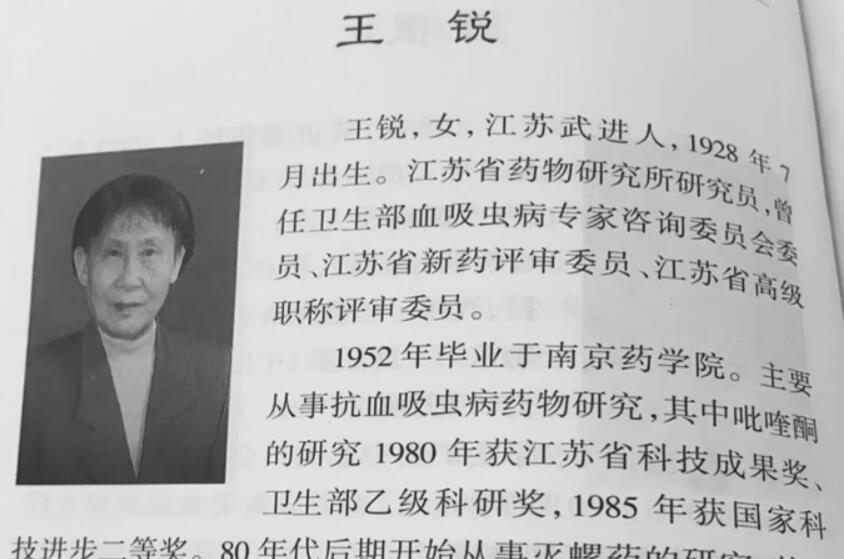 王锐
王锐，女，江苏武进人，1928年7
月出生。江苏省药物研究所研究员，曾
任卫生部血吸虫病专家咨询委员会委
员、江苏省新药评审委员、江苏省高级
职称评审委员。
1952年毕业于南京药学院。主要
从事抗血吸虫病药物研究，其中吡喹酮
的研究1980年获江苏省科技成果奖、
卫生部乙级科研奖，1985年获国家科
技进步二等奖。80年代后期开始从事灭螺药的研究